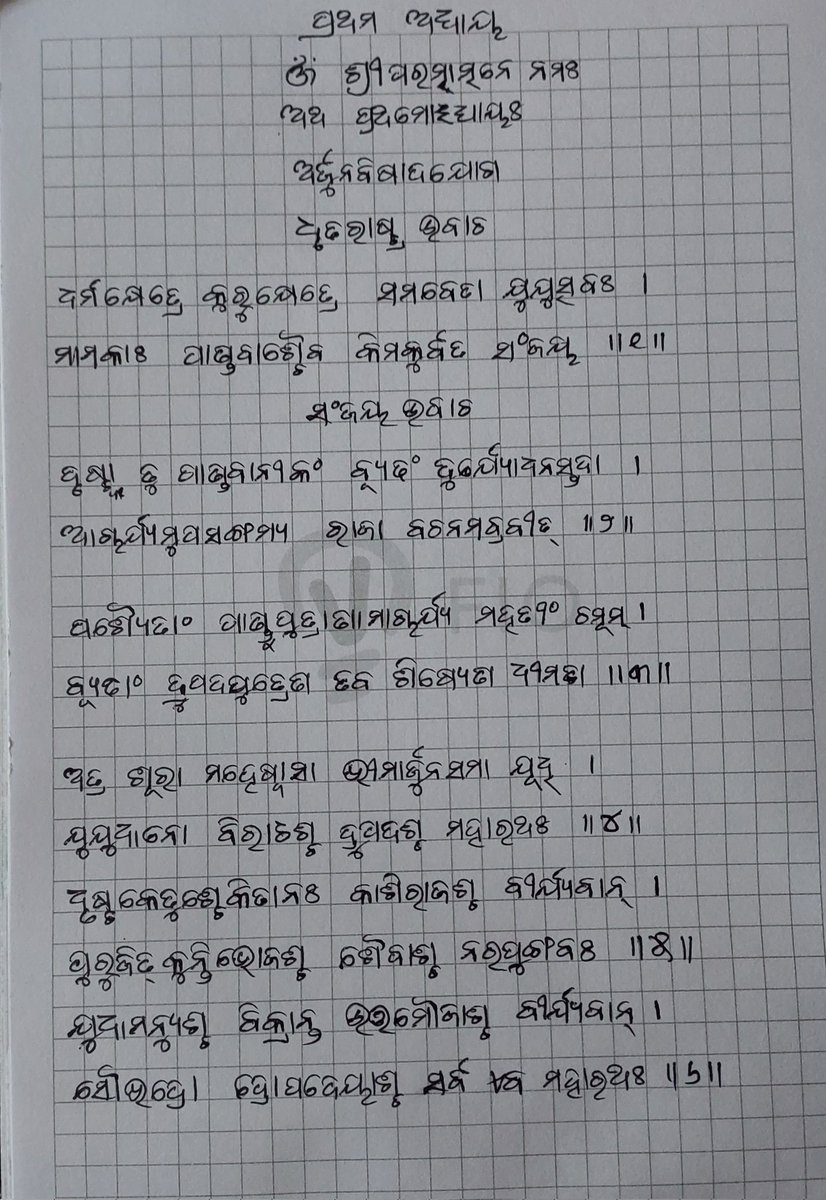 ପ୍ରଥମ ଅଧ୍ୟାୟ
ॐ ଶ୍ରୀପରମାତ୍ମନେ ନମଃ
ଅଥ ପ୍ରଥମୋଽଧ୍ୟାୟଃ
ଅର୍ଜୁନବିଷାଦଯୋଗ
ଧୃତରାଷ୍ଟ୍ର ଉବାଚ
ଧର୍ମକ୍ଷେତ୍ରେ କୁରୁକ୍ଷେତ୍ରେ ସମବେତା ଯୁଯୁତ୍ସବଃ ।
ମାମକାଃ ପାଣ୍ଡବାଶ୍ଚୈବ କିମକୁର୍ବତ ସଂଜୟ ॥୧॥
ସଂଜୟ ଉବାଚ
ଦୃଷ୍ଟ୍ଵା ତୁ ପାଣ୍ଡବାନୀକଂ ବ୍ୟୂଢଂ ଦୁର୍ଯ୍ୟୋଧନସ୍ତଦା ।
ଆଚାର୍ଯ୍ୟମୁପସଙ୍ଗମ୍ୟ ରାଜା ବଚନମବ୍ରବୀତ୍ ॥୨॥
ପଶ୍ୟୈତାଂ ପାଣ୍ଡୁପୁତ୍ରାଣାମାଚାର୍ଯ୍ୟ ମହତୀଂ ଚମୂମ୍ ।
ବ୍ୟୂଢାଂ ଦ୍ରୁପଦପୁତ୍ରେଣ ତବ ଶିଷ୍ୟେଣ ଧୀମତା ॥୩॥
ଅତ୍ର ଶୂରା ମହେଷ୍ଵାସା ଭୀମାର୍ଜୁନସମା ଯୁଧି ।
ଯୁଯୁଧାନୋ ବିରାଟଶ୍ଚ ଦ୍ରୁପଦଶ୍ଚ ମହାରଥଃ ॥୪॥
ଧୃଷ୍ଟକେତୁଶ୍ଚେକିତାନଃ କାଶିରାଜଶ୍ଚ ବୀର୍ଯ୍ୟବାନ୍ ।
ପୁରୁଜିତ୍ କୁନ୍ତିଭୋଜଶ୍ଚ ଶୈବ୍ୟଶ୍ଚ ନରପୁଙ୍ଗବଃ ॥୫॥
ଯୁଧାମନ୍ୟୁଶ୍ଚ ବିକ୍ରାନ୍ତ ଉତ୍ତମୌଜାଶ୍ଚ ବୀର୍ଯ୍ୟବାନ୍ ।
ସୌଭଦ୍ରୋ ଦ୍ରୌପଦେୟାଶ୍ଚ ସର୍ବ ଏବ ମହାରଥଃ ॥୬॥